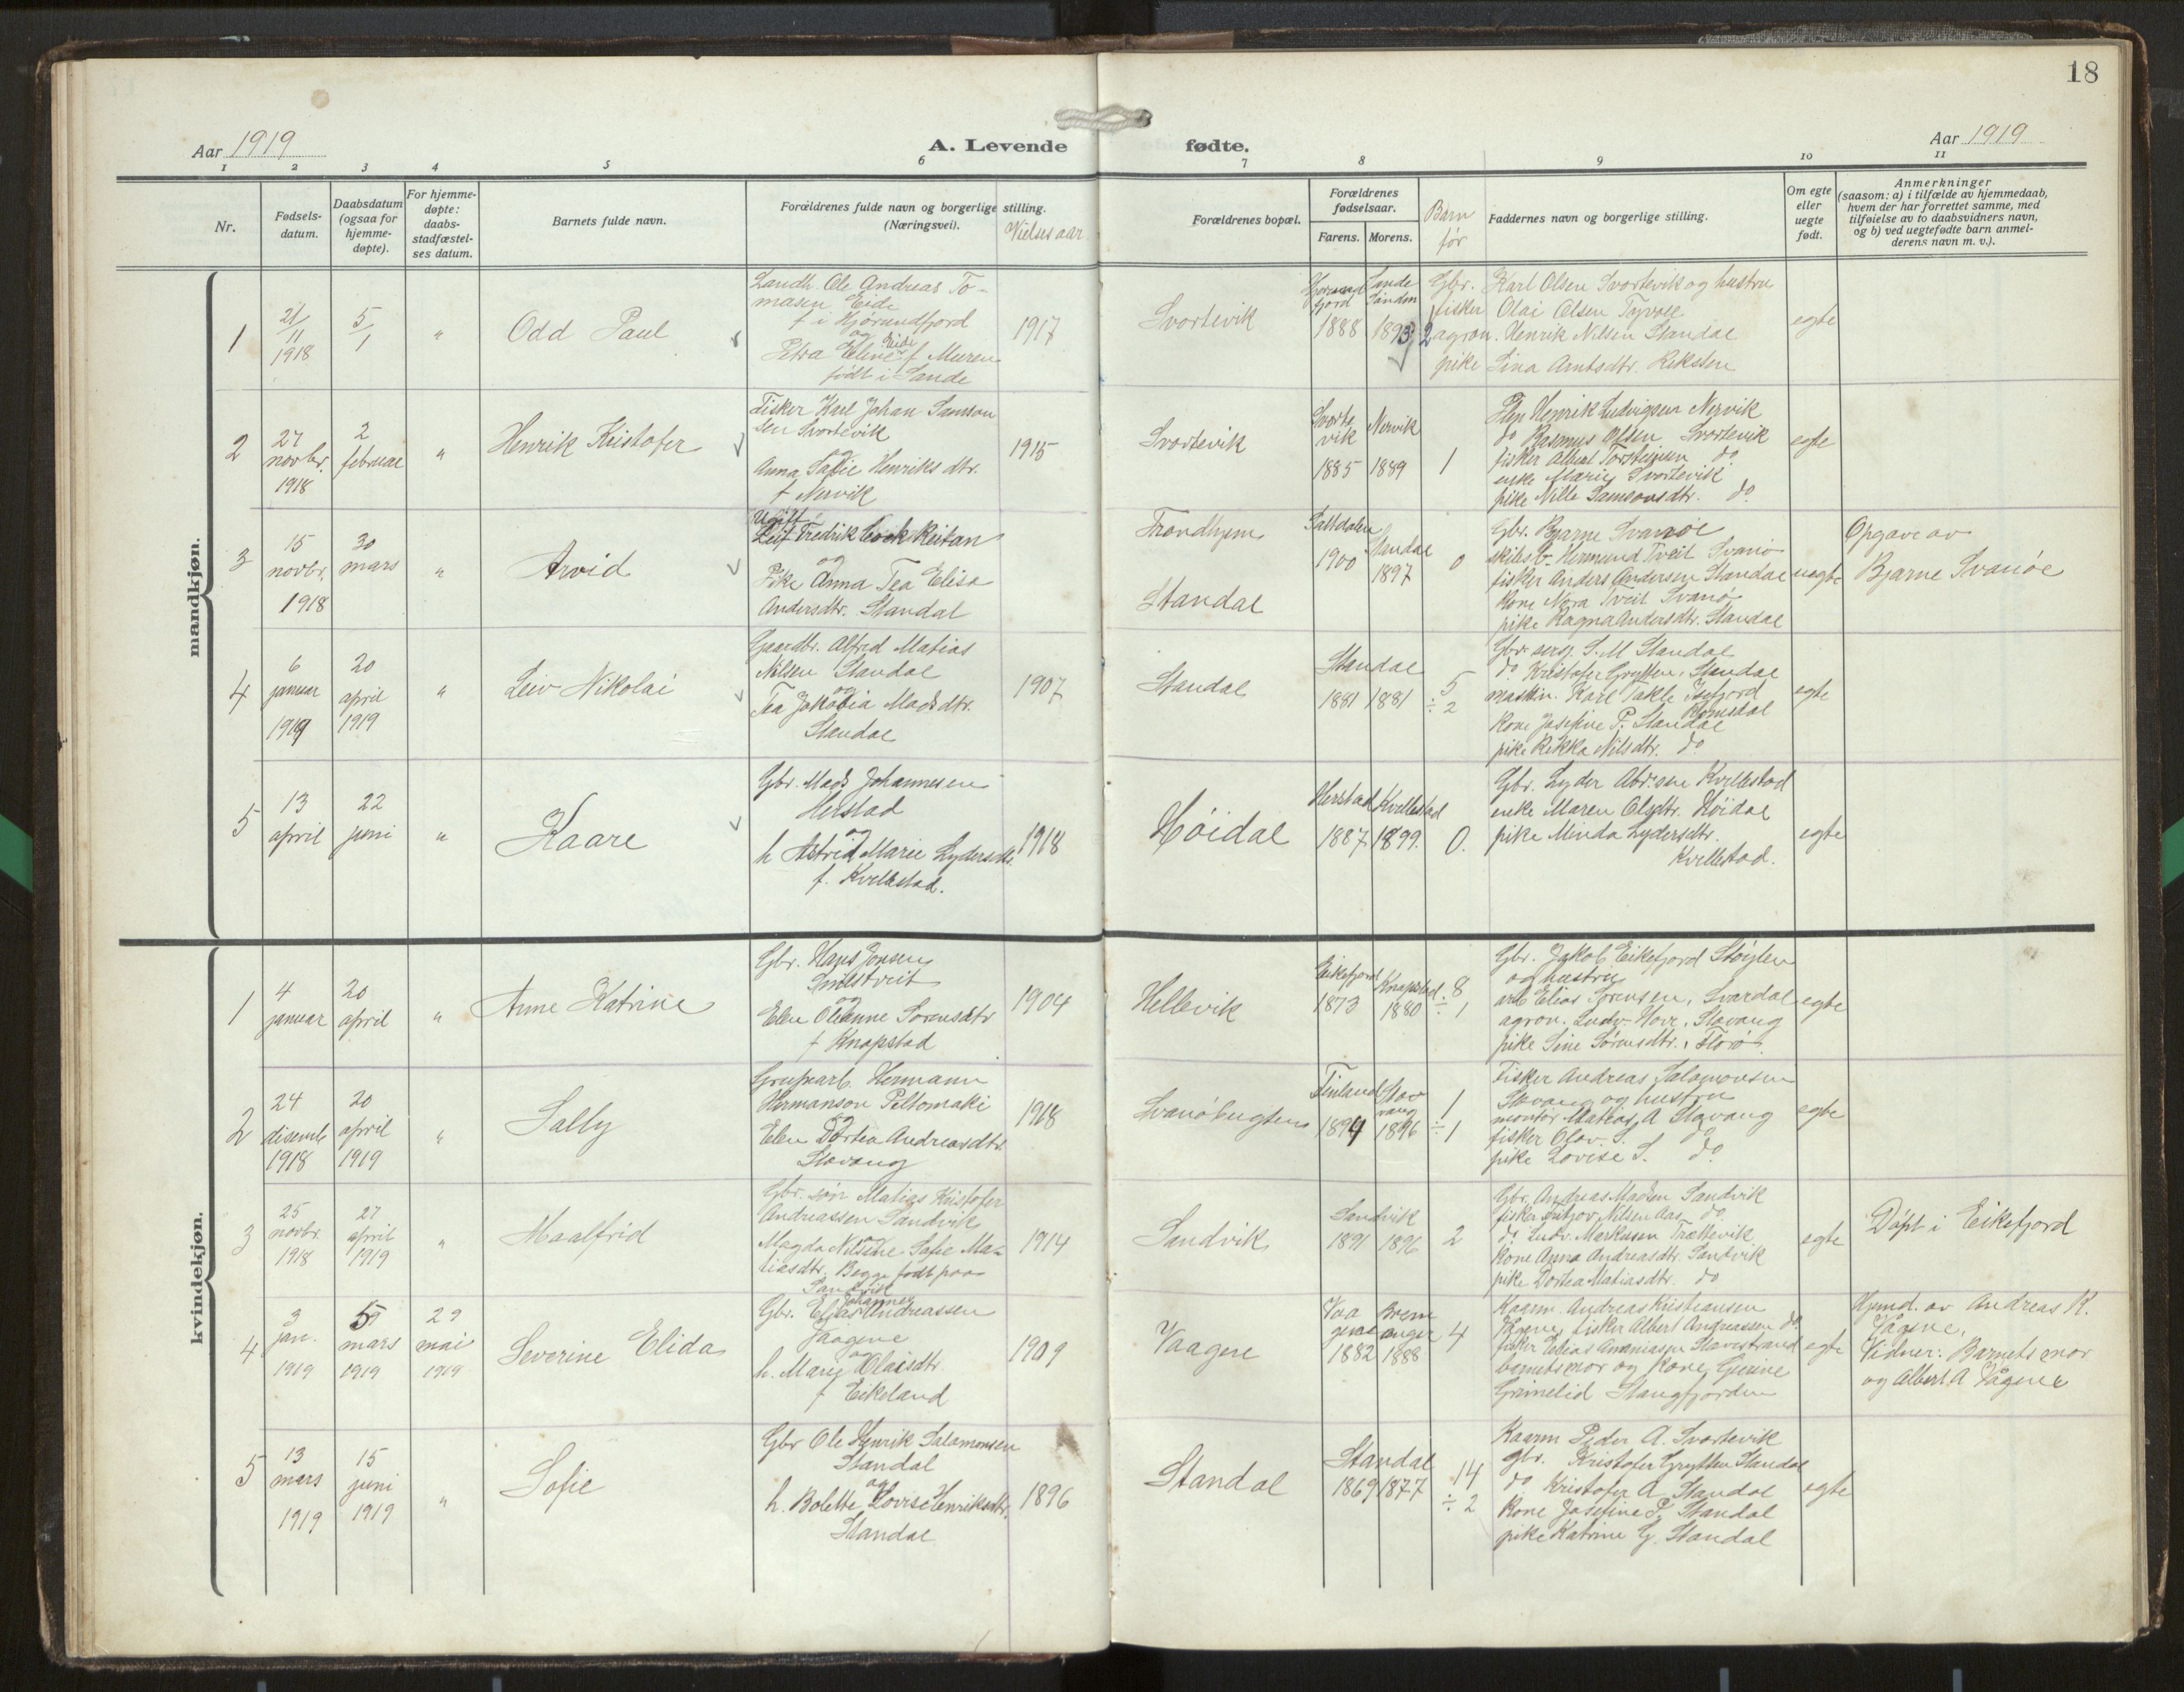 18
Aar 1919
A. Levende fødte.
Aar 1919
1 2 3 4 5 6 7 8 9 10 11
Nr.
Fødsels-
datum.
Daabsdatum
(ogsaa for
hjemme-
døpte).
For hjemme-
døpte:
daabs-
stadfæstel-
ses datum.
Barnets fulde navn.
Forældrenes fulde navn og borgerlige stilling.
(Næringsvei).
Vielses aar
Forældrenes bopæl.
Forældrenes
fødselsaar.
Farens. Morens.
Barn
før
Faddernes navn og borgerlige stilling.
Om egte
eller
uegte
født.
Anmerkninger
(saasom: a) i tilfælde av hjemmedaab,
hvem der har forrettet samme, med
tilføielse av to daabsvidners navn,
og b) ved uegtefødte barn anmel-
derens navn m. v.).
mandkjøn.
1
21/11
1918
5/1
"
Odd Paul
Landh. Ole Andreas To-
masen Eide
f i Hjørundfjord
og
Petra Eline Eide f Meeren
født i Sande
1917
Svortevik
Hjørund
fjord
1888
Sande
Søndm
1893
2
Gbr. Karl Olsen Svortevik og hustru
fisker Olai Olsen Tyvoll
agron. Henrik Nilsen Standal
pike Lina Arntsdtr. Reksten
egte
2
27
novbr.
1918
2
februar
"
Henrik Kristofer
Fisker Karl Johan Samson
sen Svortevik
og
Anna Sofie Henriksdtr.
f Nervik
1915
Svortevik
Svorte
vik
1885
Nervik
1889
1
Henrik Ludvigsen Nervik
do Rasmus Olsen Svortevik
fisker Albert Torsteinsen do
enke Marie Svortevik
pike Nille Samsonsdtr. do
egte
3
15
novbr.
1918
30
mars
"
Arvid
Ugift
Leif Fredrik Cook Reitan
og
Pike Anna Tea Elisa
Andersdtr. Standal
Trondhjem
Standal
Saltdalen
1900
Standal
1897
0
Gbr. Bjarne Svanøe
skibsb. Hermund Tveit Svanø
fisker Anders Andersen Standal
kone Nora Tveit Svanø
pike Ragna Andersdtr. Standal
uegte
Opgave av
Bjarne Svanøe
4
6
januar
1919
20
april
1919
"
Leiv Nikolai
Gaardbr. Alfred Matias
Nilsen Standal
og
Tea Jakobia Madsdtr.
Standal
1907
Standal
Standal
1881 1881
5
÷ 2
Gbr. serg. S. M Standal
do Kristofer Grytten, Standal
maskin. Karl Takle Isfjord
Romsdal
Kone Josefine P. Standal
pike Rikka Nilsdtr. do
egte
5
13
april
22
juni
"
Kaare
Gbr. Mads Johannesen
Herstad
og
h Astrid Marie Lydersdtr.
f. Kvellestad.
1918
Høidal
Herstad
1887
Kvellestad
1899.
0.
Gbr. Lyder Abr.sen Kvellestad
enke Maren Olsdtr. Høidal
pike Minda Lydersdtr.
Kvellestad.
egte
kvindekjøn.
1
4
januar
20
april
"
Anne Katrine
Gbr. Hans Jonsen
Indstveit
og
Elen Oleanne Sørensdtr
f Knapstad
1904
Hellevik
Eikefjord
1873
Knapstad
1880
8
÷ 1
Gbr. Jakob Eikefjord Støylen
og hustru
arb Elias Sørensen, Svardal
agron. Ludv. Hovr, Stavang
pike Sine Sørensdtr., Florø.
egte
2
24
disemb
1918
20
april
1919
"
Sally
Grubearb. Hermann
Hermanson Peltomaki
og
Elen Dortea Andreasdtr.
Stavang
1918
Svanøbugten
Finland
1894
Stav
vang
1896
1
÷ 1
Fisker Andreas Salomonsen
Stavang og hustru
montør Matias A Stavang
fisker Olav. S. do
pike Lovise S. do
egte
3
25
novbr.
1918
27
april
1919
"
Maalfrid
Gbr. søn Matias Kristofer
Andreassen Sandvik
og
Magda Nilsine Sofie Ma-
tiasdtr. Begge født paa
Sandvik
1914
Sandvik
Sandvik
1891 1896
2
Gbr. Andreas Madsen Sandvik
fisker Fritjov Nilsen Aas do
do Ludv. Markussen Trættevik
Kone Anna Andreasdtr. Sandvik
pike Dortea Matiasdtr. do
egte
Døpt i Eikefjord
4
3
jan.
1919
5
mars
1919
29
mai
1919
Severine Elida
Gbr. Elias Johannes Andreassen
Vaagene
og
h. Marie Olaisdtr.
f Eikeland
1909
Vaagene
Vaa
gene
1882
Brem
anger
1888
4
Kaarm. Andreas Kristiansen
Vågene, fisker Albert Andreassen do
fisker Tobias Ananiasen Stavestrand
barnets mor og Kone Gjesine
Grimelid Stangfjorden
egte
Hjemd. av Andreas K.
Vågene,
Vidner: Barnets mor
og Albert A Vågene
5
13
mars
1919
15
juni
1919
"
Sofie
Gbr Ole Henrik Salomonsen
Standal
og
h. Bolette Lovise Henriksdtr.
Standal
1896
Standal
Standal
1869 1877
14
÷ 2
Kaarm Peder A. Svortevik
gbr. Kristofer Grytten Standal
do Kristofer A Standal
Kone Josefine P. Standal
pike Katrine G. Standal
egte